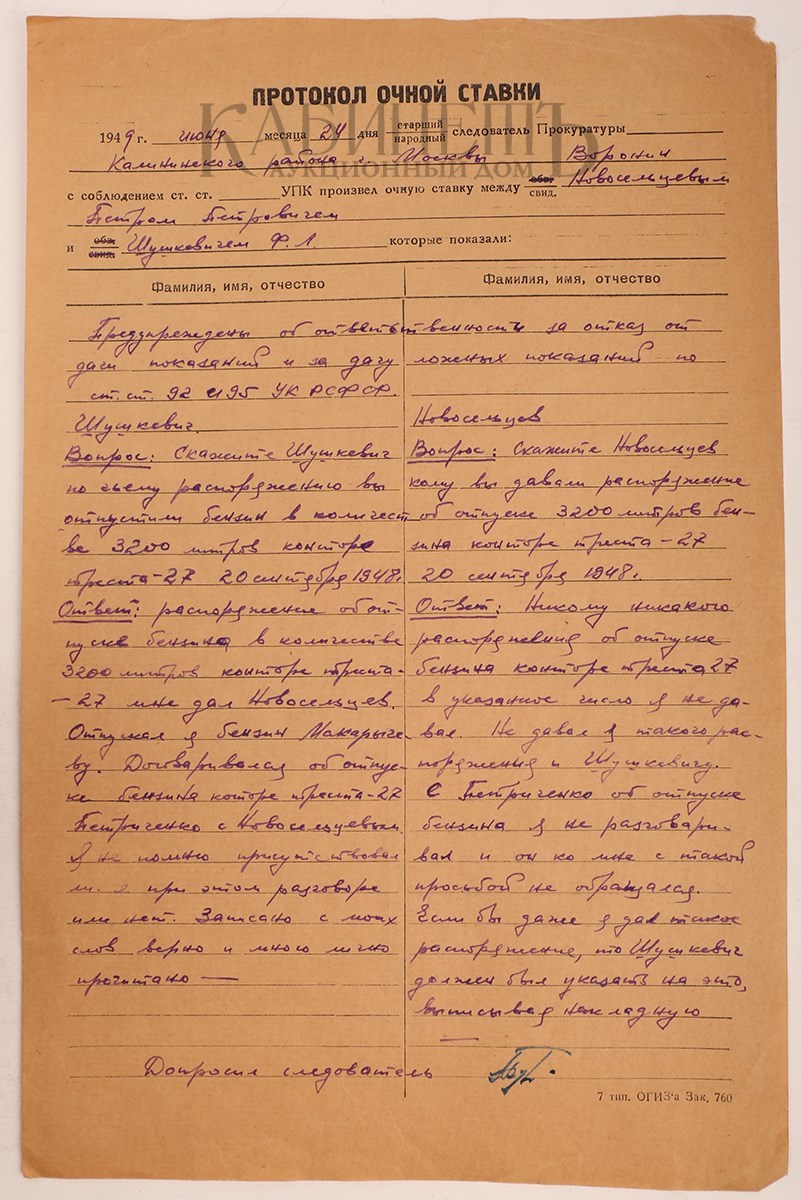 ПРОТОКОЛ ОЧНОЙ СТАВКИ
КАБИНЕТЪ
АУКЦИОННЫЙ ДОМ
1949 г. июня месяца 24 дня старший народный следователь Прокуратуры
Калининского района г. Москвы Воронин
с соблюдением ст. ст. УПК произвел очную ставку между обв. свид. Новосельцевым
Петром Петровичем
и обв. свид. Шушкевичем Ф. Л. которые показали:
Фамилия, имя, отчество
Фамилия, имя, отчество
Предупреждены об ответственность за отказ от
дачи показаний и за дачу ложных показаний по
ст.ст. 92 и 95 УК РСФСР.
Шушкевич.
Вопрос: Скажите Шушкевич
по чьему распоряжению вы
отпустили бензин в количест
ве 3200 литров конторе
треста-27 20 сентября 1948г.
Ответ: распоряжение об от-
пуске бензина в количестве
3200 литров конторе треста-
-27 мне дал Новосельцев.
Отпускал я бензин Макарыче-
ву. Договаривался об отпус-
ке бензина конторе треста-27
Петриченко с Новосельцевым.
Я не помню присутствовал
ли я при этом разговоре
или нет. Записано с моих
слов верно и мною лично
прочитано —
Новосельцев
Вопрос: Скажите Новосельцев
кому вы давали распоряжение
об отпуске 3200 литров бен-
зина конторе треста-27
20 сентября 1948г.
Ответ: Никому никакого
распоряжения об отпуске
бензина конторе треста 27
в указанное число я не да-
вал. Не давал я такого рас-
поряжения и Шушкевичу.
С Петриченко об отпуске
бензина я не разговари-
вал и он ко мне с такой
просьбой не обращался.
Если бы даже я дал такое
распоряжение, то Шушкевич
должен был указать на это,
выписывая накладную
—
Допросил следователь
7 тип. ОГИЗ'а Зак. 760